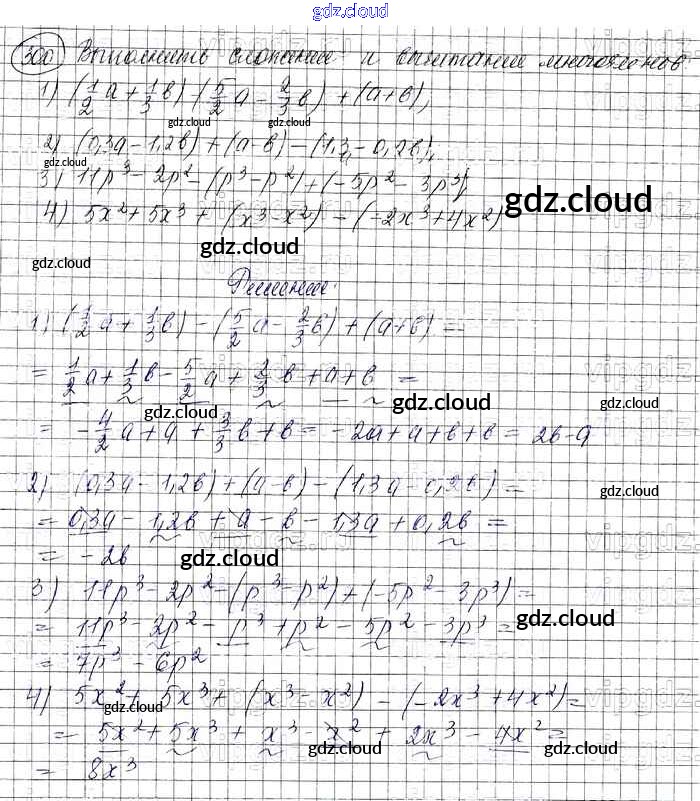 gdz.cloud
300 Выполнить сложение и вычитание многочленов
1) (1/2 a + 1/3 в) - (5/2 a - 2/3 в) + (a + в),
gdz.cloud gdz.cloud
2) (0,3a - 1,2в) + (a - в) - (1,3 - 0,2в),
gdz.cloud
3) 11p³ - 2p² - (p³ - p²) + (-5p² - 3p³),
gdz.cloud
4) 5x² + 5x³ + (x³ - x²) - (-2x³ + 4x²)
gdz.cloud
gdz.cloud gdz.cloud
Решение:
1) (1/2 a + 1/3 в) - (5/2 a - 2/3 в) + (a + в) =
= 1/2 a + 1/3 в - 5/2 a + 2/3 в + a + в =
gdz.cloud gdz.cloud
= -4/2 a + a + 3/3 в + в = -2a + a + в + в = 2в - a
2) (0,3a - 1,2в) + (a - в) - (1,3a - 0,2в) =
gdz.cloud
= 0,3a - 1,2в + a - в - 1,3a + 0,2в =
= -2в
gdz.cloud
3) 11p³ - 2p² - (p³ - p²) + (-5p² - 3p³) =
gdz.cloud
= 11p³ - 2p² - p³ + p² - 5p² - 3p³ =
= 7p³ - 6p²
4) 5x² + 5x³ + (x³ - x²) - (-2x³ + 4x²) =
gdz.cloud
= 5x² + 5x³ + x³ - x² + 2x³ - 4x² =
gdz.cloud gdz.cloud
= 8x³